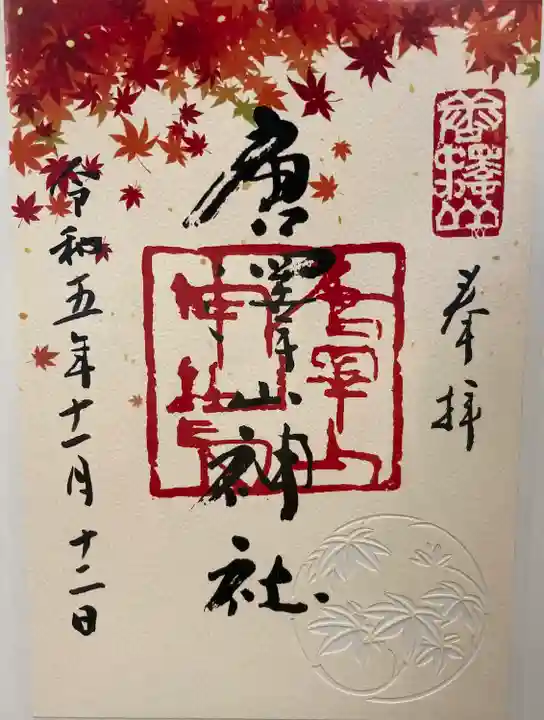 唐澤山
奉拝
唐澤山神社
令和五年十一月十二日